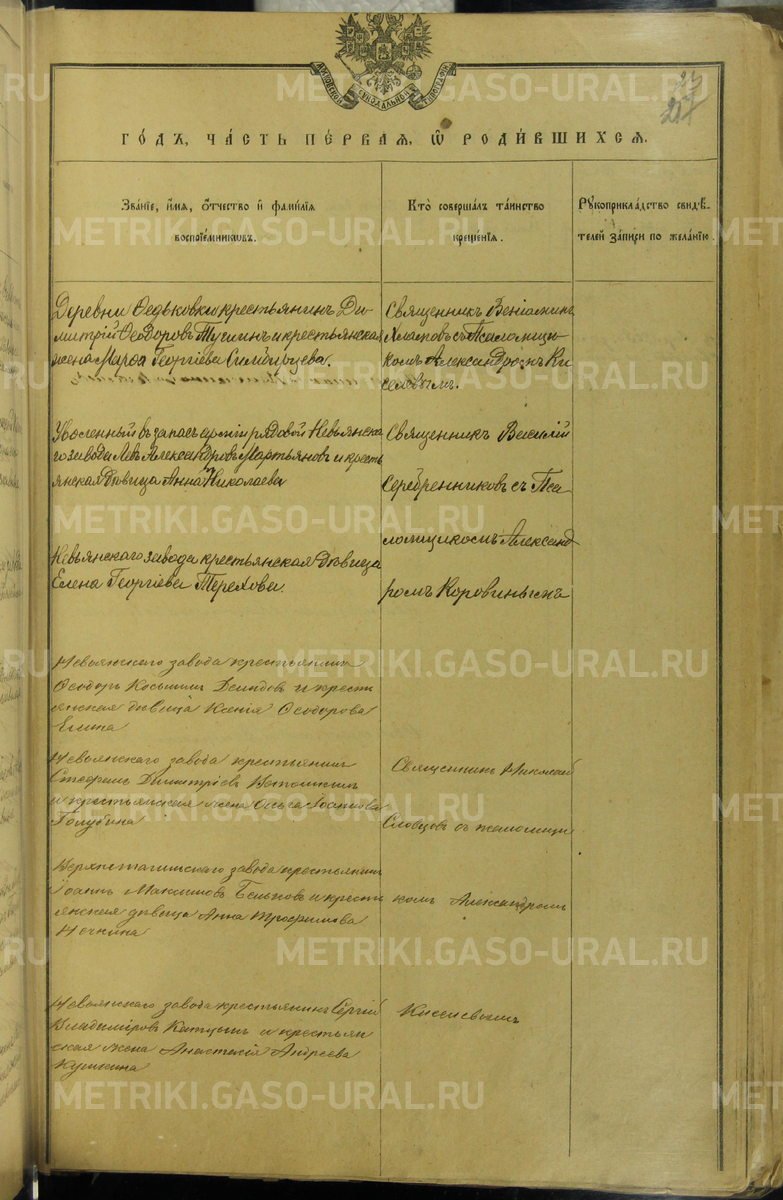 МОСКОВСКОЙ СѴНОДАЛЬНОЙ ТИПОГРАФІИ
27
217
ГО́ДЪ, ЧА́СТЬ ПЕ́РВАЯ, Ѿ РОДИ́ВШИХСЯ.
Зва́нїе, и҆́мя, ѻ҆́тчество и҆ фами́лїя
воспрїе́мниковъ.
Кто̀ соверша́лъ та́инство
креще́нїя.
Рꙋкоприкла́дство свидѣ́-
телей за́писи по жела́нїю.
Деревни Ѳедьковки крестьянинъ Ди-
митрій Ѳеодоровъ и крестьянская
жена Марѳа Георгіева
Священникъ Веніаминъ
съ Псаломщи-
комъ Александромъ Ки
селевымъ.
Уволенный въ запасъ арміи рядовой Невьянска
го завода Левъ Александровъ Мартьяновъ и кресть
янская дѣвица Анна Николаева
Священникъ Василій
Серебренниковъ съ Пса
ломщикомъ Александ
ромъ Коровинымъ
Невьянскаго завода крестьянская дѣвица
Елена Георгіева Терехова.
Невьянскаго завода крестьянинъ
Ѳеодоръ Косьминъ и кресть
янская дѣвица Ксенія Ѳеодорова
Невьянскаго завода крестьянинъ
Стефанъ Димитріевъ
и крестьянская жена Ольга Іоаннова
Голубина
Священникъ Николай
Словцовъ съ псаломщи
комъ Александромъ
Киселевымъ
Верхнетагильскаго завода крестьянинъ
Іоаннъ Максимовъ Бельковъ и кресть
янская дѣвица Анна Трофимова
Нечкина
Невьянскаго завода крестьянинъ Сергій
Владиміровъ и крестьян
ская жена Анастасія Андреева
METRIKI.GASO-URAL.RU